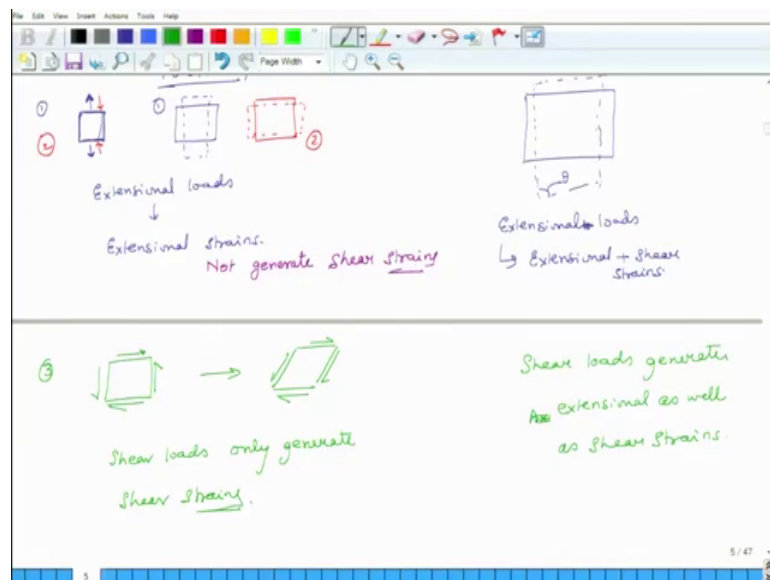 File Edit View Insert Actions Tools Help
B I
Page Width
①
②
①
②
Extensional loads
↓
Extensional strains.
Not generate shear strains
θ
Extensional loads
↳ Extensional + shear
strains
③
→
Shear loads only generate
shear strains.
Shear loads generate
extensional as well
as shear strains.
5/47
5